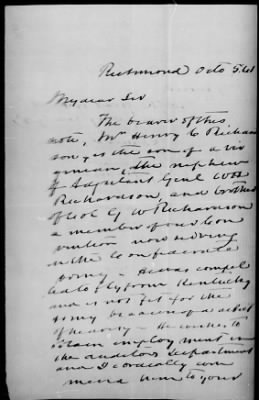 Richmond Octo 5, 61
My dear Sir
The bearer of this
note, Mr Henry C Richard
son, is the son of a Vir
ginian, the nephew
of Adjutant Genl WH
Richardson, and brother
of Col G W Richardson
a member of our Con
vention now serving
in the Confederate
army - He was compel
led to fly from Kentucky
and is not fit for the
army because of a defect
of hearing - He wishes to
obtain employment in
the auditors department
and I cordially com
mend him to your